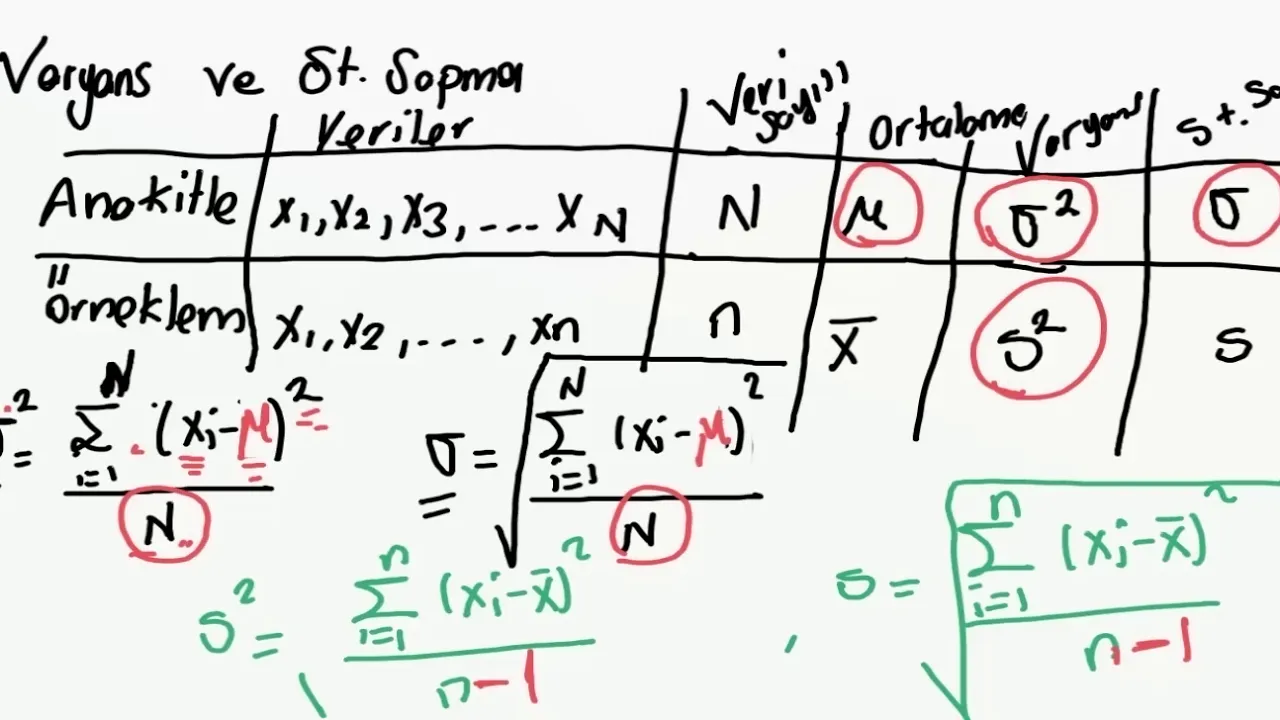 Varyans ve St. Sapma
Veriler Veri sayısı Ortalama Varyans St. Sa
Anakitle x₁, x₂, x₃, .... x_N N μ σ² σ
Örneklem x₁, x₂, ...., xₙ n x̄ s² s
σ² = ∑_{i=1}^{N} (xᵢ-μ)² / N σ = √(∑_{i=1}^{N} (xᵢ-μ)² / N)
s² = ∑_{i=1}^{n} (xᵢ-x̄)² / n-1 , s = √(∑_{i=1}^{n} (xᵢ-x̄)² / n-1)